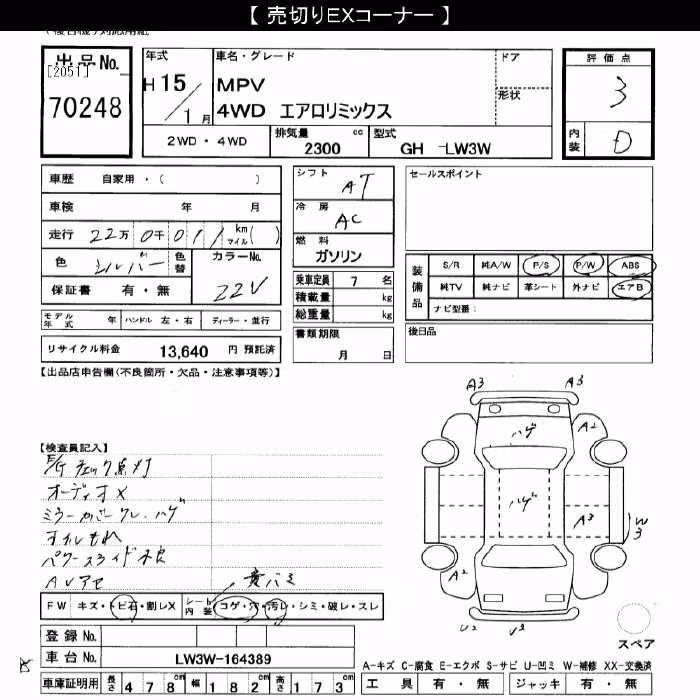 【 売切りEXコーナー 】
出品No.
[2051]
70248
年式
H 15 / 1 月
車名・グレード
MPV
4WD エアロリミックス
ドア
形状
2WD・4WD
排気量 cc
2300
型式
GH -LW3W
評価点
3
内装
D
車歴 自家用・( )
車検 年 月
走行 22万 0千 011 km マイル( )
色 シルバー 色替
カラーNo. 22V
保証書 有・無
モデル年式 年 ハンドル 左・右 ディーラー・並行
リサイクル料金 13,640 円 預託済
シフト AT
冷房 AC
燃料 ガソリン
乗車定員 7 名
積載量 kg
総重量 kg
書類期限
月 日
セールスポイント
装備品
S/R 純A/W P/S P/W ABS
純TV 純ナビ 革シート 外ナビ エアB
ナビ型番:
後日品
【出品店申告欄(不良箇所・欠品・注意事項等)】
【検査員記入】
E/Gチェック点灯
オーディオX
ミラーカバークレ・ハゲ
オイルもれ
パワースライド不良
A3 A3
ハゲ A2
ハゲ
A3 W3
A2
U2 U2
スペア
FW キズ・トビ石・割レX
シート内装 コゲ・穴・汚レ・シミ・破レ・スレ
登録No.
車台No. LW3W-164389
A-キズ C-腐食 E-エクボ S-サビ U-凹ミ W-補修 XX-交換済
車庫証明用 長さ 478 幅 182 高さ 173
工具 有・無 ジャッキ 有・無